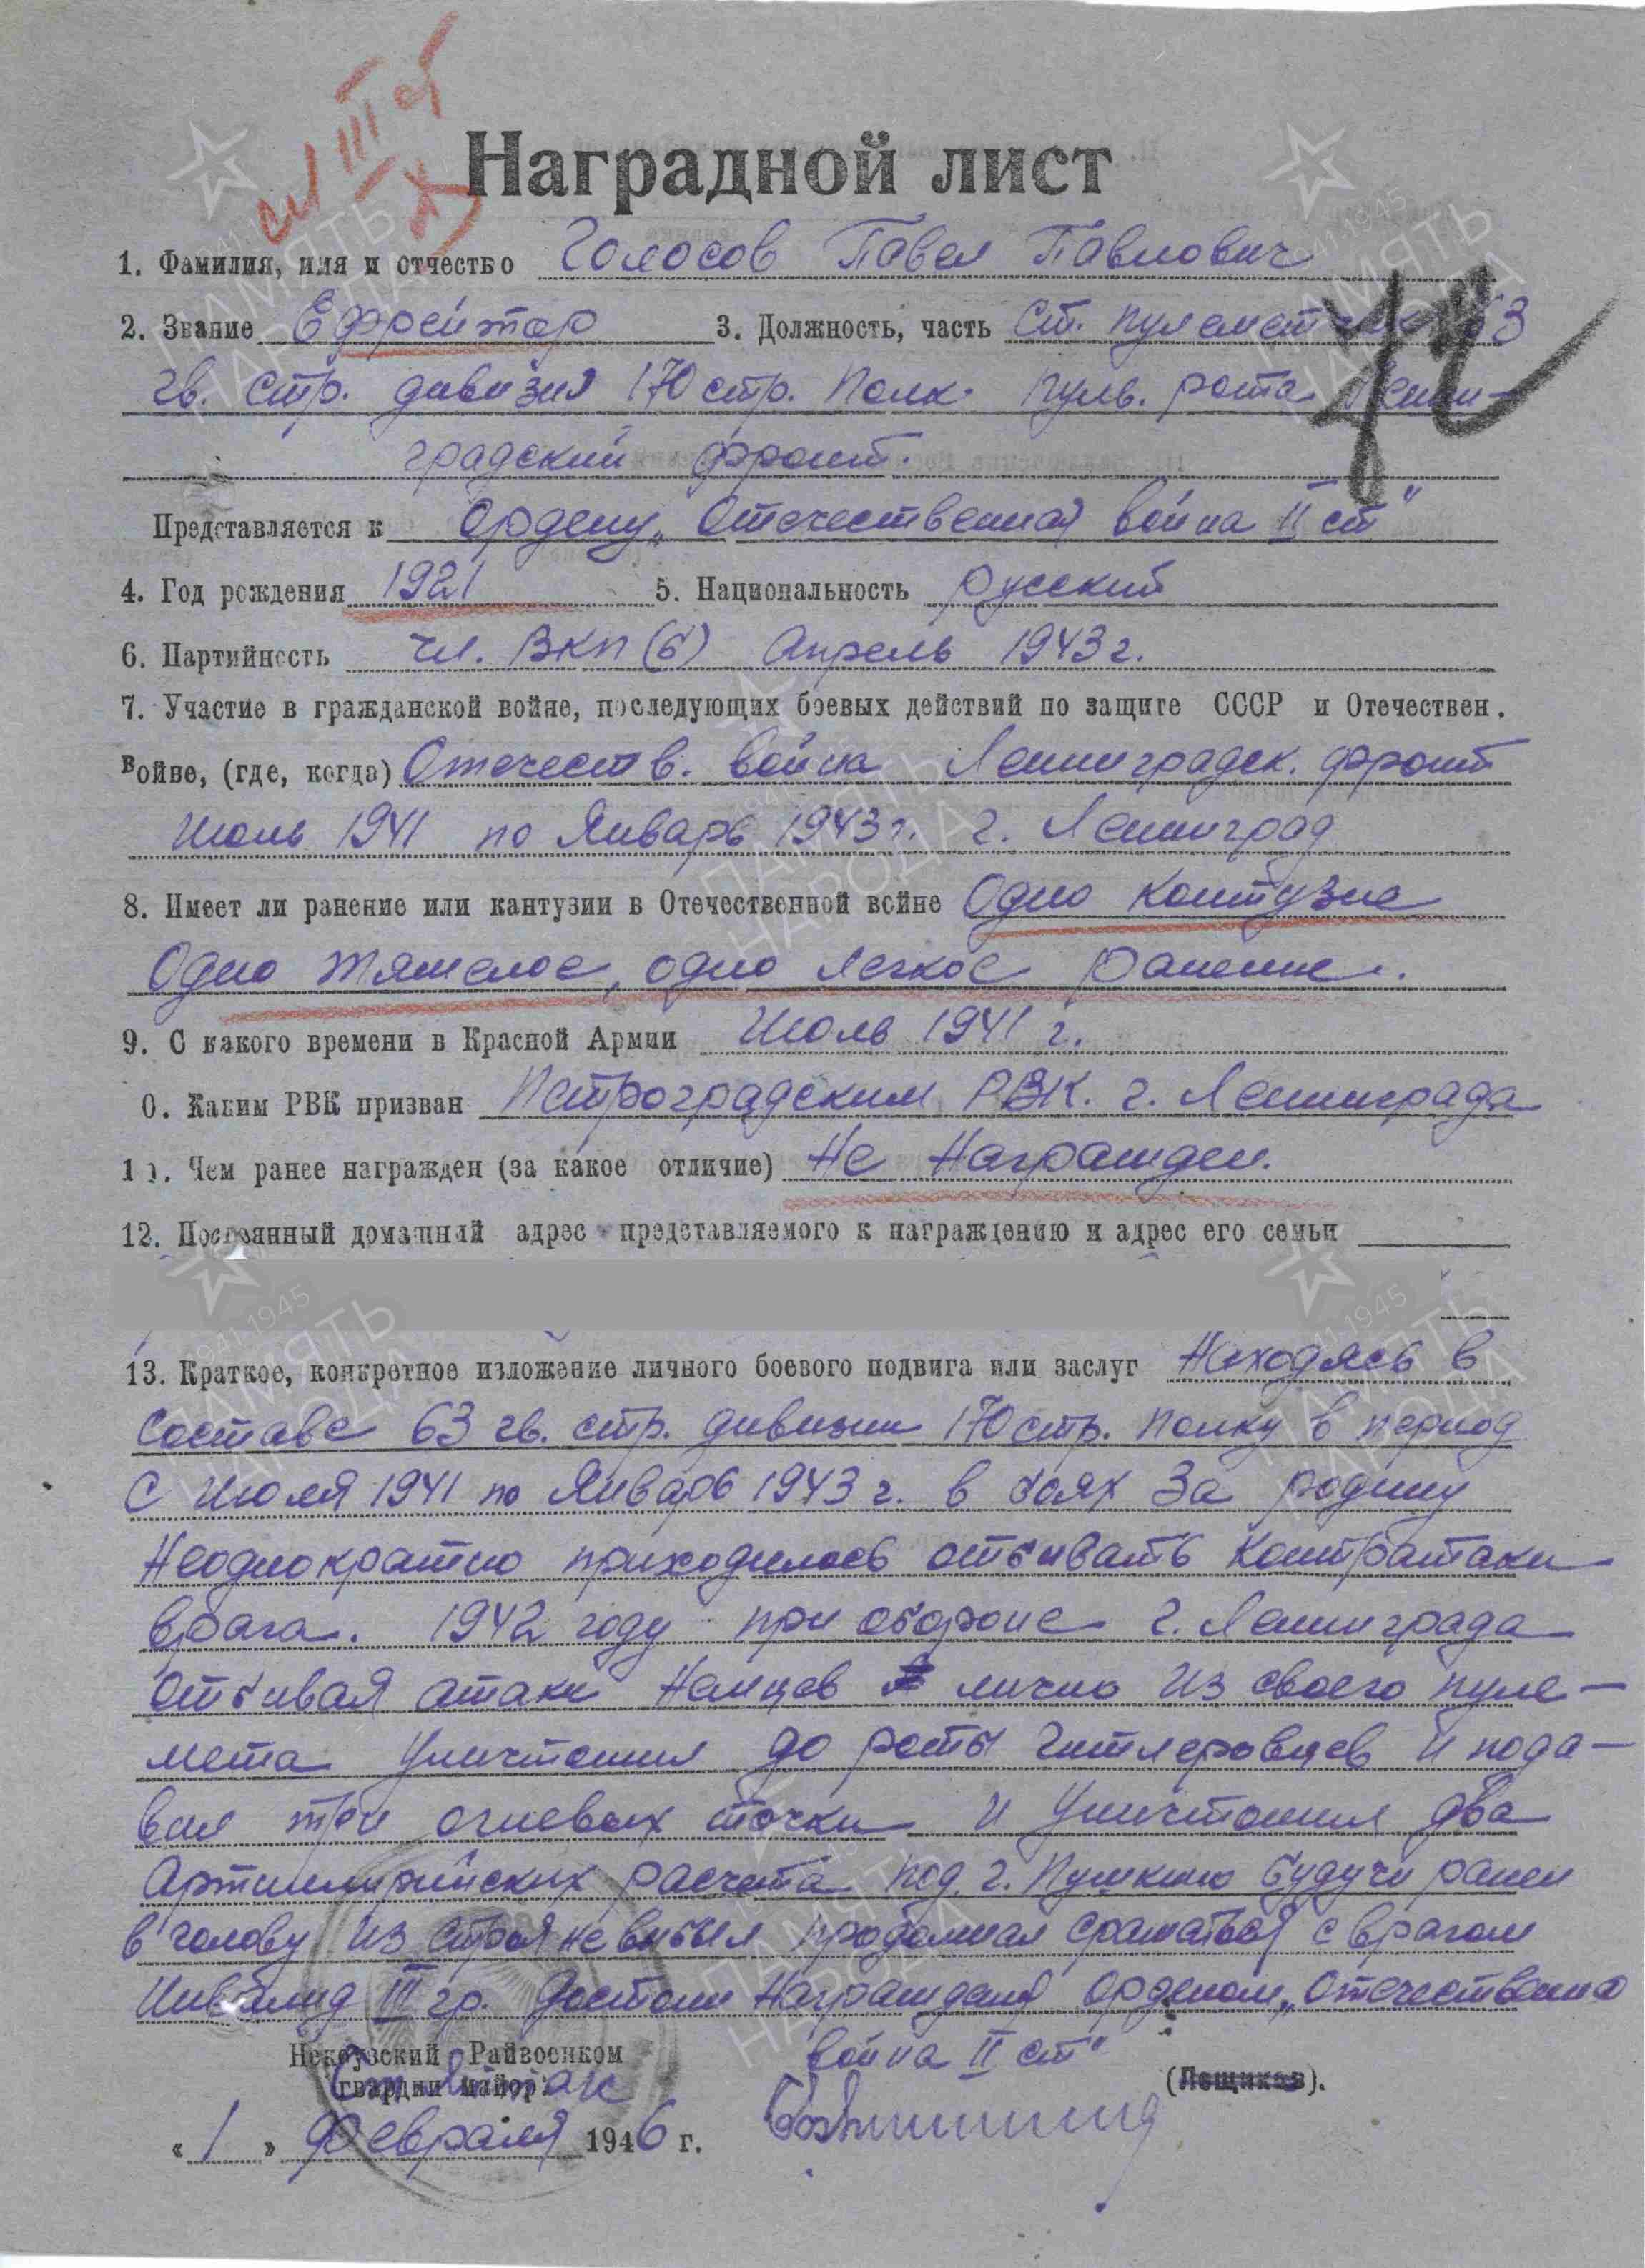 сл III ст
Наградной лист
1. Фамилия, имя и отчество Голосов Павел Павлович
2. Звание Ефрейтор 3. Должность, часть Ст. пулеметчик 63
гв. стр. дивизия 170 стр. Полк. пульв. рота Ленин-
градский фронт.
Представляется к Ордену „Отечественная война II ст"
4. Год рождения 1921 5. Национальность русский
6. Партийность чл. ВКП(б) Апрель 1943 г.
7. Участие в гражданской войне, последующих боевых действий по защите СССР и Отечествен.
войне, (где, когда) Отечеств. война Ленинградск. фронт
Июль 1941 по Январь 1943 г. г. Ленинград
8. Имеет ли ранение или кантузии в Отечественной войне Одно контузие
Одно тяжелое, одно легкое ранение.
9. С какого времени в Красной Армии Июль 1941 г.
0. Каким РВК призван Петроградским РВК. г. Ленинграда
1). Чем ранее награжден (за какое отличие) Не Награжден.
12. Постоянный домашний адрес представляемого к награждению и адрес его семьи
13. Краткое, конкретное изложение личного боевого подвига или заслуг Находясь в
составе 63 гв. стр. дивизии 170 стр. полку в период
с Июля 1941 по Январь 1943 г. в боях За родину
Неоднократно приходилось отбивать контратаки
врага. 1942 году при обороне г. Ленинграда
отбивая атаки Немцев лично из своего пуле-
мета Уничтожил до роты гитлеровцев и пода-
вил три огневых точки и Уничтожил два
Артиллирийских расчета под г. Пушкино будучи ранен
в голову из строя не выбыл продолжал сражаться с врагом
Инвалид III гр. Достоин Награждения Орденом „Отечественна
война II ст"
Некоузский Райвоенком
гвардии майор:
(Лещиков).
«1» Февраля 1946 г.
ПАМЯТЬ НАРОДА
1941 1945